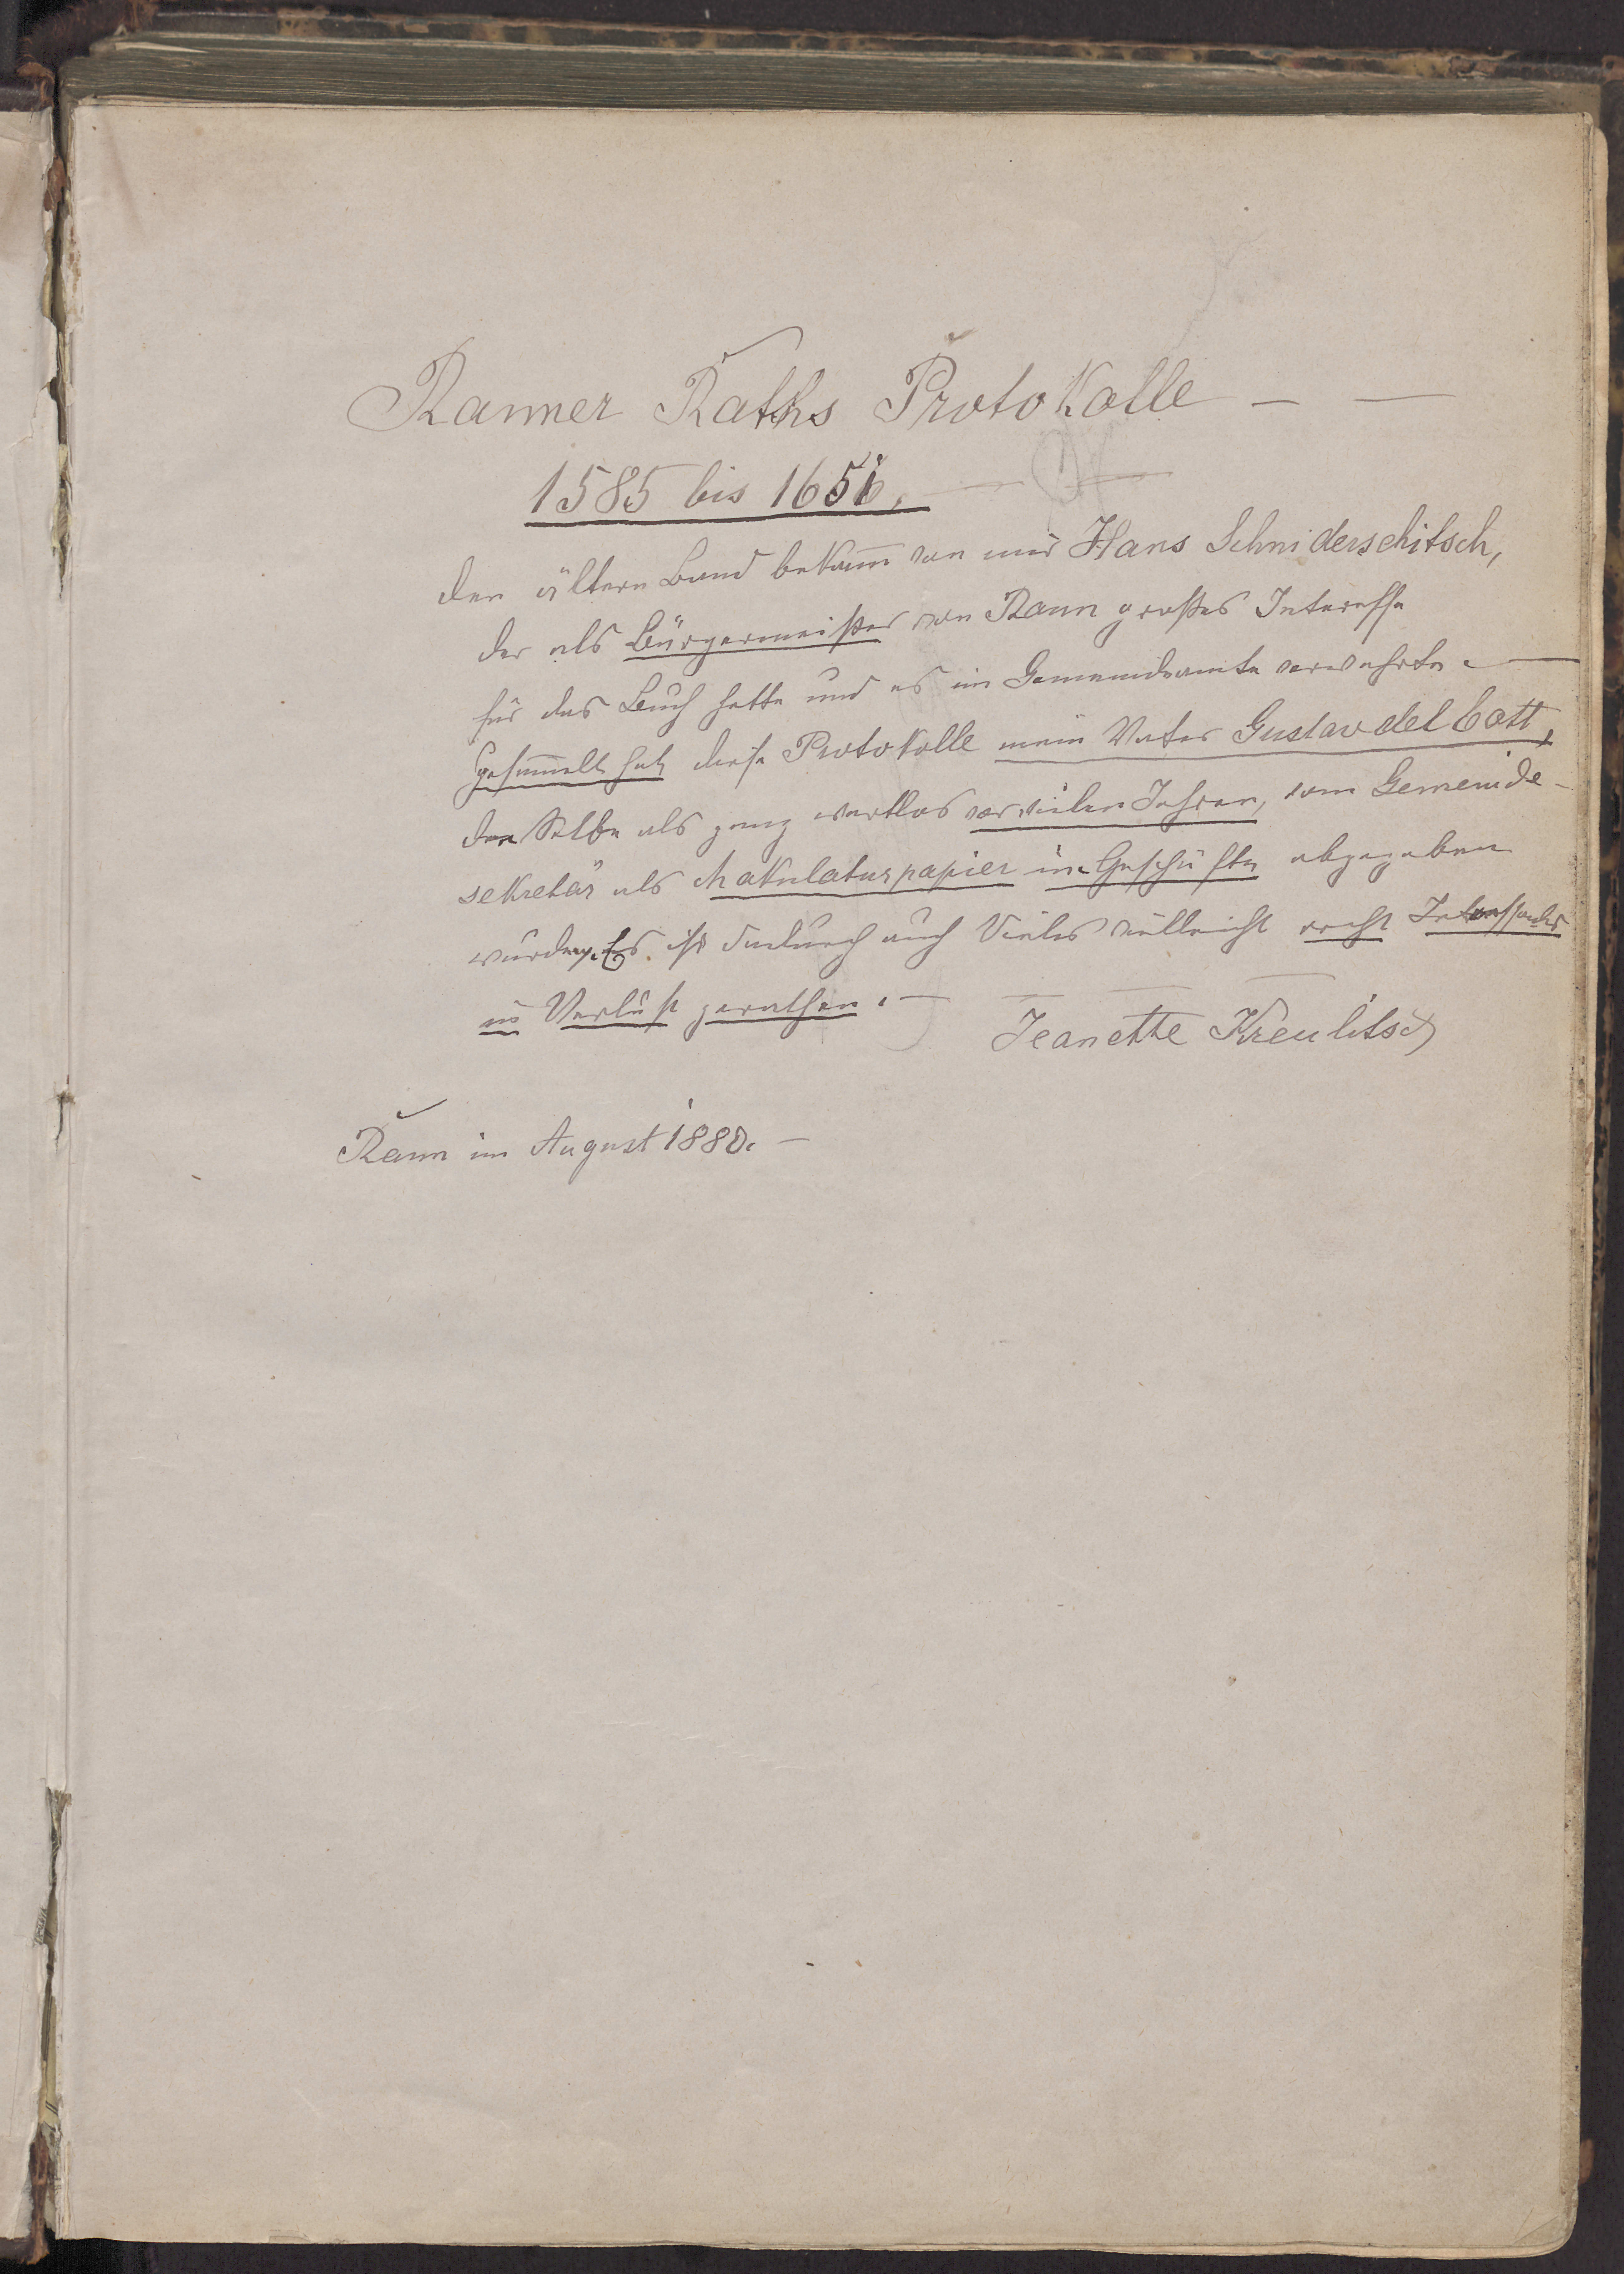 Ranner Raths Protokolle — —
1585 bis 1656. —
Den ältern Band bekam̄ von mir Hans Schniderschitsch,
der als Bürgermeister von Rann großes Interesse
für das Buch hatte und es im Gemeindeamte verwahrte. —
Gesam̄elt hat diese Protokolle mein Vater Gustav del Cott,
da Selbe als ganz wertlos vor vielen Jahren, vom Gemeinde-
sekretär als Makulaturpapier in Geschäfte abgegeben
wurden. Es ist dadurch auch Vieles vielleicht recht Interessantes
in Verlust gerathen. —
Jeanette Kreulitsch
Rann im August 1880. —